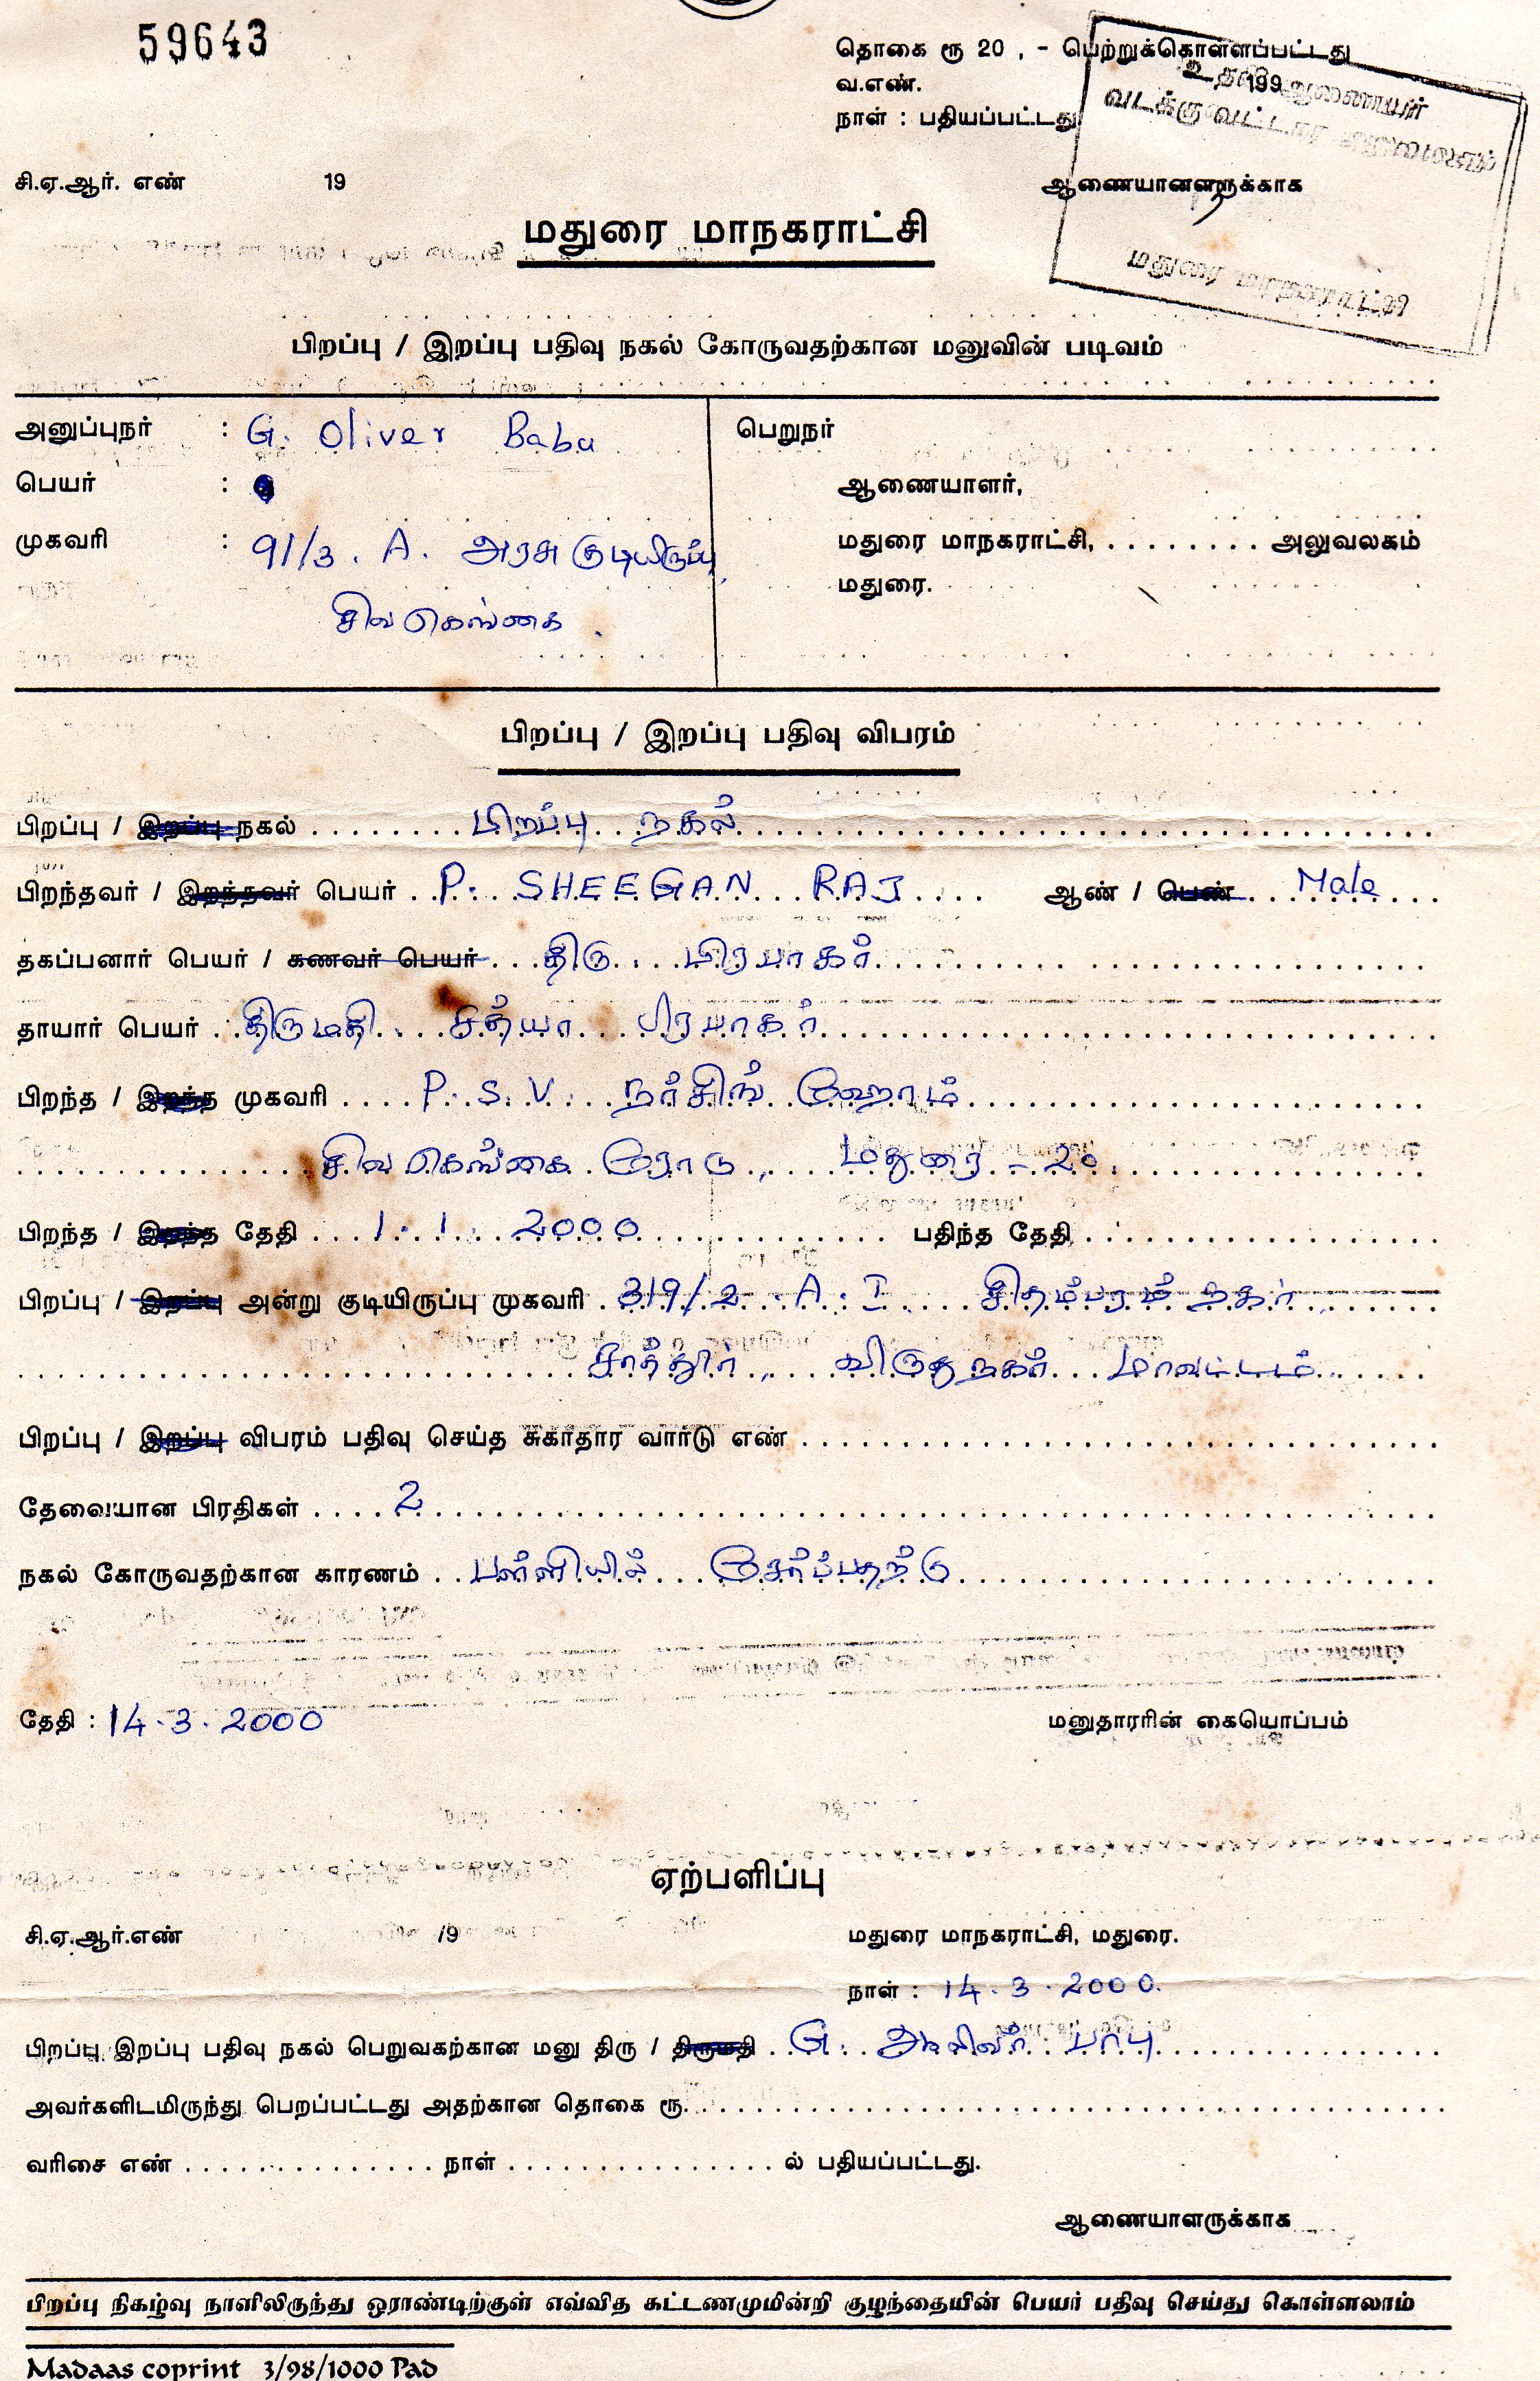 59643
தொகை ரூ 20 , - பெற்றுக்கொள்ளப்பட்டது
வ.எண். 199
நாள் : பதியப்பட்டது
வடக்கு வட்டார
மதுரை மாநகராட்சி
சி.ஏ.ஆர். எண் 19 ஆணையாளருக்காக
மதுரை மாநகராட்சி
பிறப்பு / இறப்பு பதிவு நகல் கோருவதற்கான மனுவின் படிவம்
அனுப்புநர் : G. Oliver Babu பெறுநர்
பெயர் : ஆணையாளர்,
முகவரி : 91/3. A. அரசு குடியிருப்பு, மதுரை மாநகராட்சி, . . . . . . . . அலுவலகம்
சிவகெங்கை. மதுரை.
பிறப்பு / இறப்பு பதிவு விபரம்
பிறப்பு / இறப்பு நகல் பிறப்பு நகல்
பிறந்தவர் / இறந்தவர் பெயர் P. SHEEGAN RAJ ஆண் / பெண் Male
தகப்பனார் பெயர் / கணவர் பெயர் திரு பிரபாகர்
தாயார் பெயர் திருமதி சத்யா பிரபாகர்
பிறந்த / இறந்த முகவரி P. S. V. நர்சிங் ஹோம்
சிவகெங்கை ரோடு, மதுரை - 20.
பிறந்த / இறந்த தேதி 1. 1. 2000 பதிந்த தேதி
பிறப்பு / இறப்பு அன்று குடியிருப்பு முகவரி 319/2. A. I சிதம்பரம் நகர்,
சாத்தூர், விருதுநகர் மாவட்டம்.
பிறப்பு / இறப்பு விபரம் பதிவு செய்த சுகாதார வார்டு எண்
தேவையான பிரதிகள் 2
நகல் கோருவதற்கான காரணம் பள்ளியில் சேர்ப்பதற்கு
தேதி : 14.3.2000 மனுதாரரின் கையொப்பம்
ஏற்பளிப்பு
சி.ஏ.ஆர்.எண் /9 மதுரை மாநகராட்சி, மதுரை.
நாள் : 14.3.2000.
பிறப்பு இறப்பு பதிவு நகல் பெறுவகற்கான மனு திரு / திருமதி G. ஆலிவர் பாபு
அவர்களிடமிருந்து பெறப்பட்டது அதற்கான தொகை ரூ.
வரிசை எண் . . . . . . . . . . . . . . நாள் . . . . . . . . . . . . . . . ல் பதியப்பட்டது.
ஆணையாளருக்காக
பிறப்பு நிகழ்வு நாளிலிருந்து ஓராண்டிற்குள் எவ்வித கட்டணமுமின்றி குழந்தையின் பெயர் பதிவு செய்து கொள்ளலாம்
Madaas coprint 3/98/1000 Pad